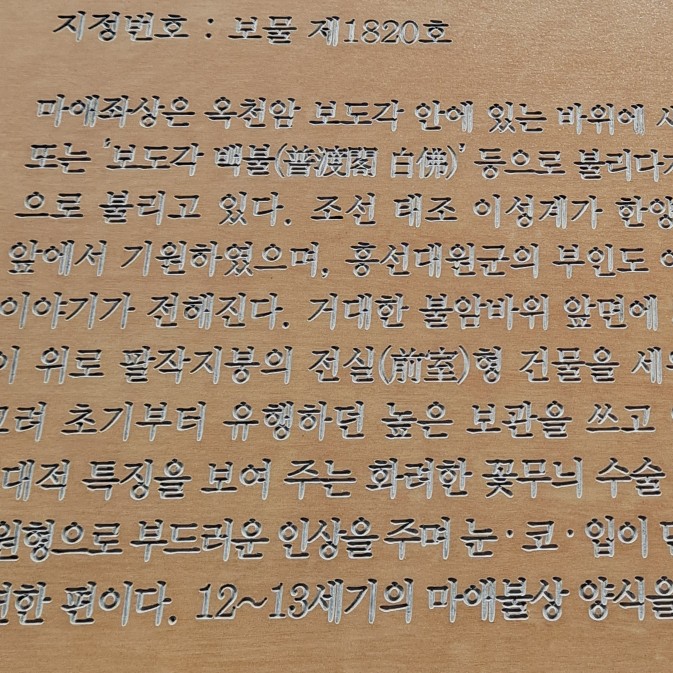 지정번호 : 보물 제1820호
마애좌상은 옥천암 보도각 안에 있는 바위에
또는 '보도각 백불(普渡閣 白佛)' 등으로 불리다가
으로 불리고 있다. 조선 태조 이성계가 한양
앞에서 기원하였으며, 흥선대원군의 부인도
이야기가 전해진다. 거대한 불암바위 앞면에
위로 팔작지붕의 전실(前室)형 건물을 세
초기부터 유행하던 높은 보관을 쓰고
대적 특징을 보여 주는 화려한 꽃무늬 수술
원형으로 부드러운 인상을 주며 눈·코·입이
편이다. 12~13세기의 마애불상 양식을